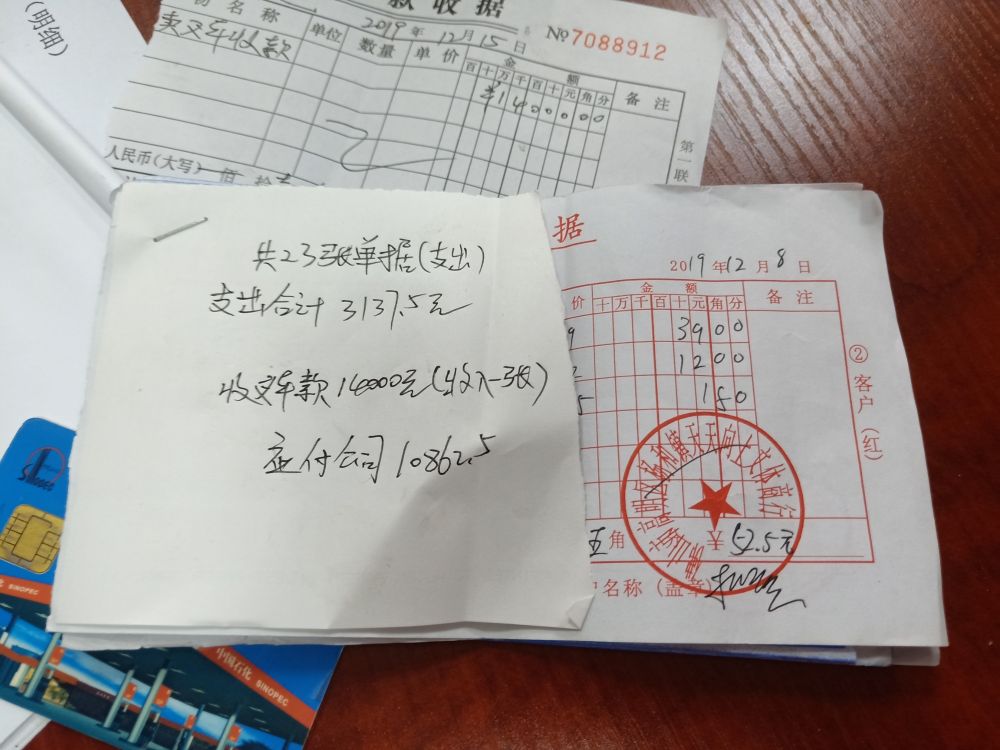 (明细)
款收据
2019年12月15日
№7088912
物名称 单位 数量 单价 金额 备注
百十万千百十元角分
卖叉车收款
¥1400000
第一联
人民币(大写) 佰 拾
共23张单据(支出)
支出合计3137.5元
收叉车款14000元(收入一张)
应付公司10862.5
据
2019年12月8日
价 金额 备注
十万千百十元角分
3900
1200
150
②客户(红)
佛山市高明区杨和镇天天向上文体商行
五角 ¥52.5元
名称(盖章)
SINOPEC
SINOPEC
中国石化 SINOPEC